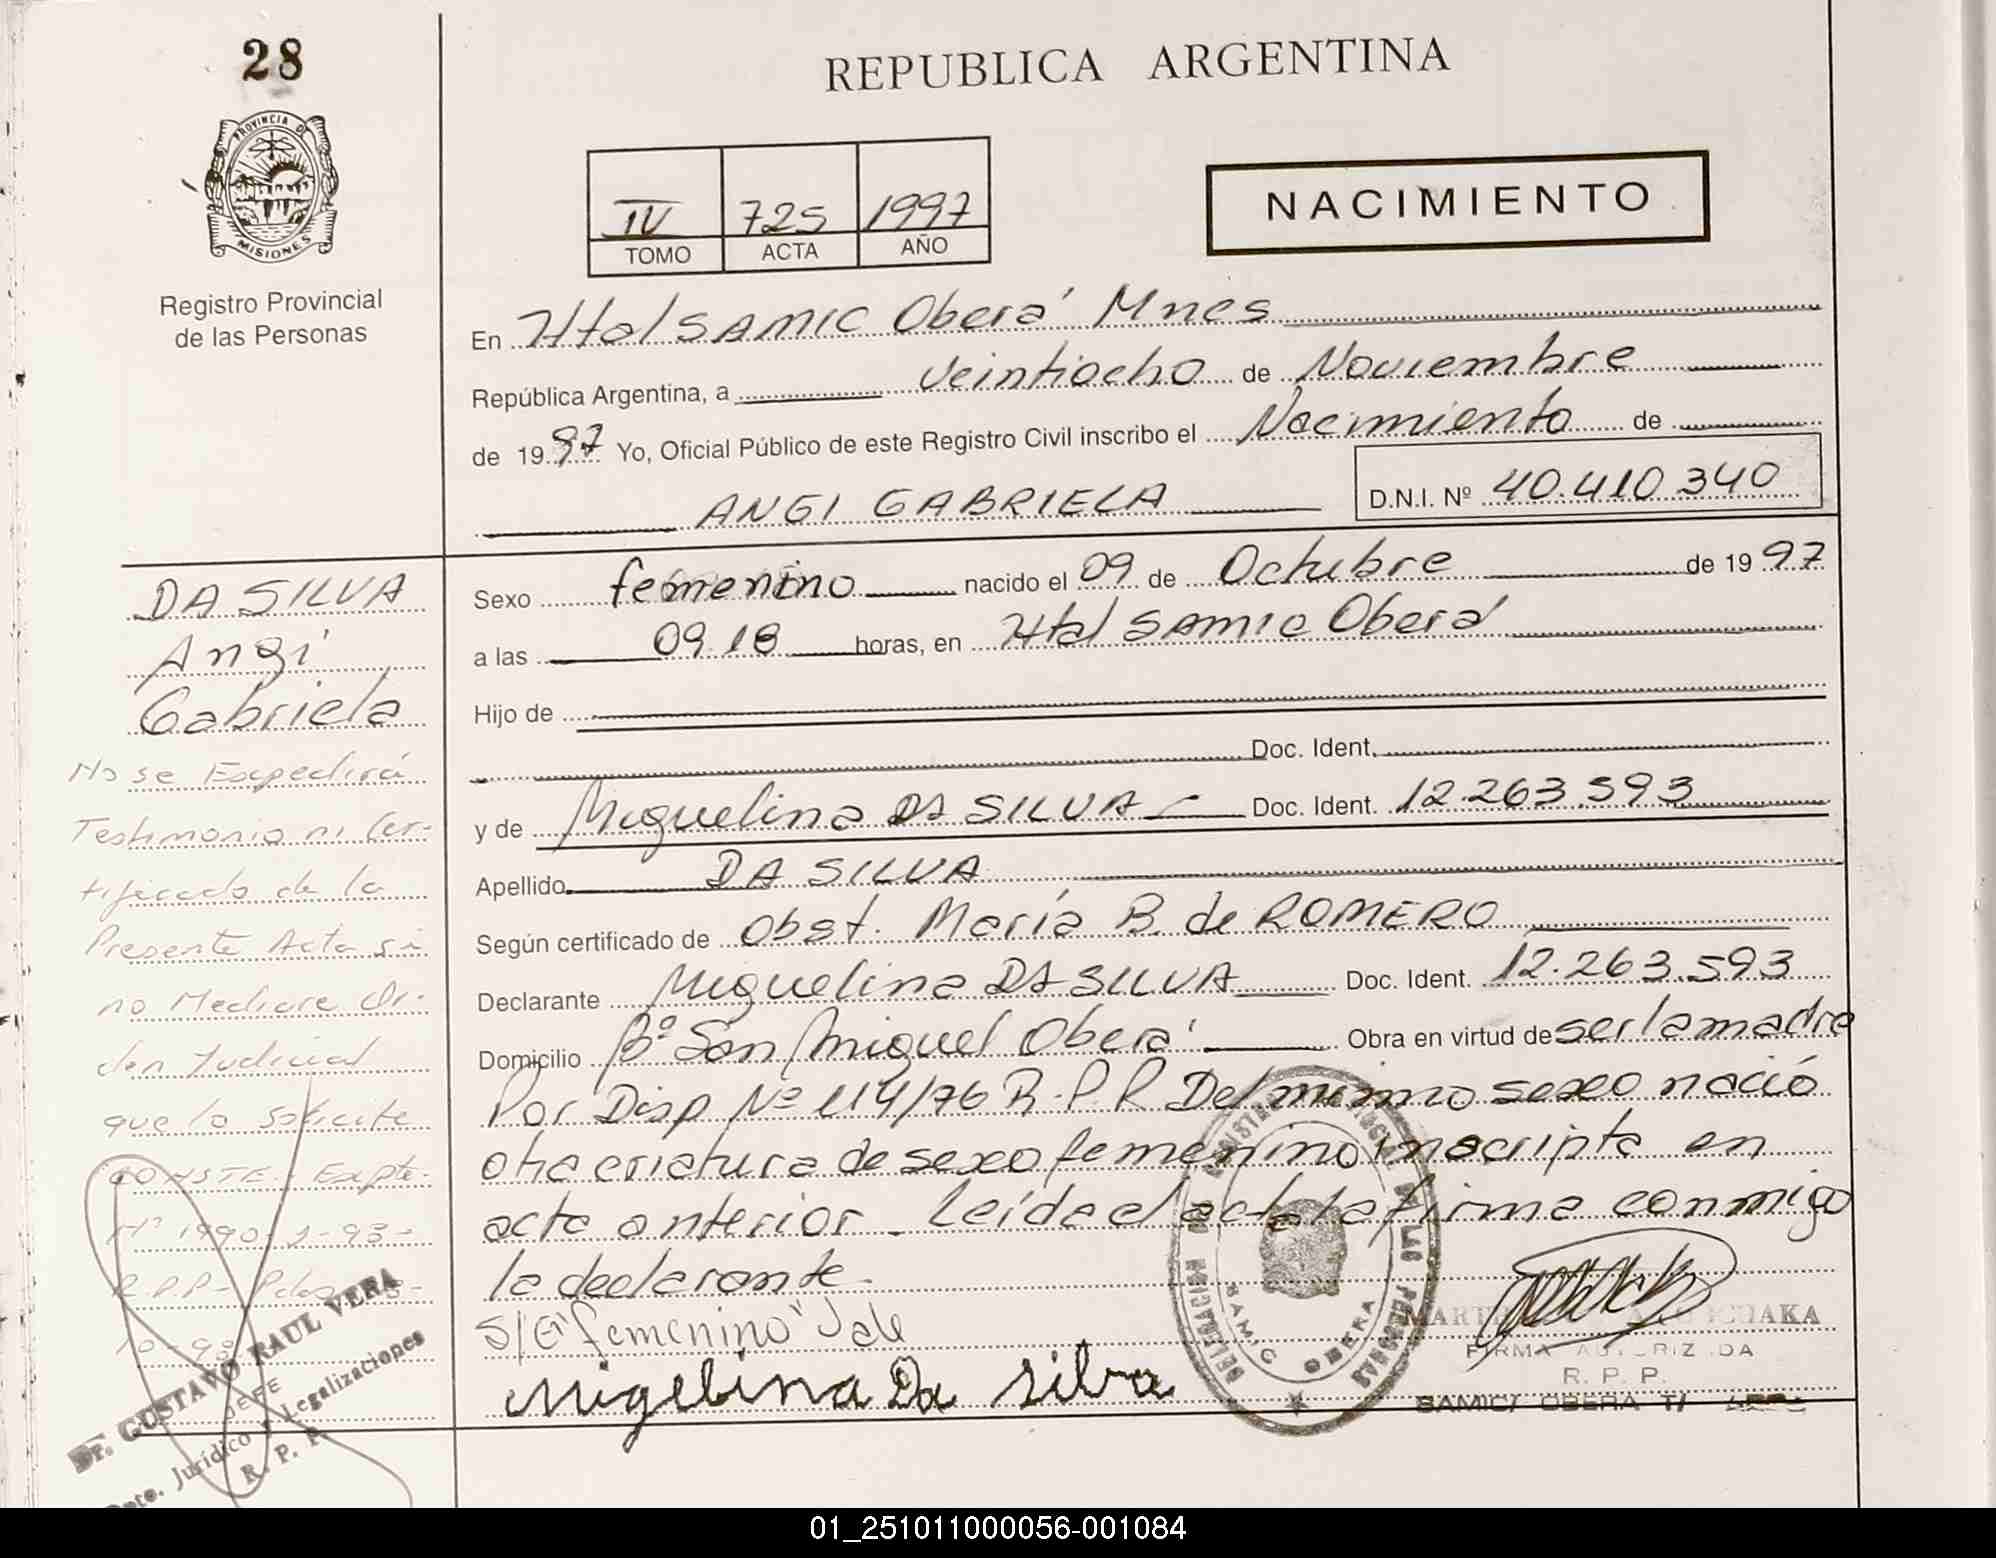 28
REPUBLICA ARGENTINA
PROVINCIA DE
MISIONES
Registro Provincial
de las Personas
IV 725 1997
TOMO ACTA AÑO
NACIMIENTO
En Htal SAMIC Oberá Mnes
República Argentina, a veintiocho de Noviembre
de 1997 Yo, Oficial Público de este Registro Civil inscribo el Nacimiento de
ANGI GABRIELA D.N.I. Nº 40.410.340
DA SILVA
Angi
Gabriela
No se Expedirá
Testimonio ni Cer-
tificado de la
Presente Acta si
no Mediare Or-
den Judicial
que lo solicite
CONSTE. Expte.
Nº 1990-2-93-
R.P.P- Pdas
10-93
Dr. GUSTAVO RAUL VERA
JEFE
Dpto. Jurídico y Legalizaciones
R. P. P.
Sexo femenino nacido el 09 de Octubre de 1997
a las 09.18 horas, en Htal SAMIC Oberá
Hijo de
Doc. Ident.
y de Miguelina DA SILVA Doc. Ident. 12.263.593
Apellido DA SILVA
Según certificado de Obst. María B. de ROMERO
Declarante Miguelina DA SILVA Doc. Ident. 12.263.593
Domicilio Bº San Miguel Oberá Obra en virtud de ser la madre
Por Disp Nº 114/76 R.P.P. Del mismo sexo nació
otra criatura de sexo femenino inscripta en
acta anterior. Leída el acta la firma conmigo
la declarante.
S/E "femenino" Vale
Migelina Da silva
SAMIC OBERA
FIRMA AUTORIZADA
R. P. P.
SAMIC/ OBERA
01_251011000056-001084